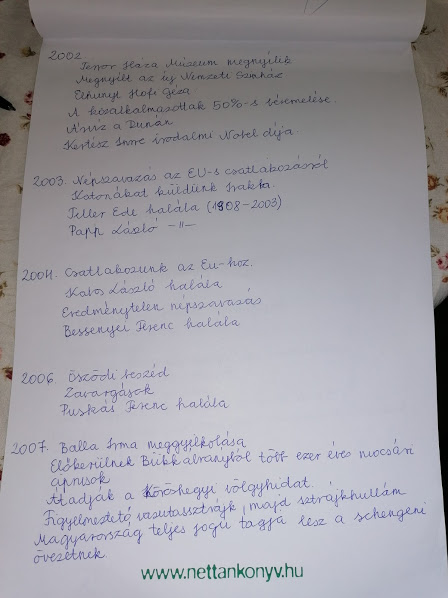 2002.
Terror Háza Múzeum megnyílik
Megnyílt az új Nemzeti Színház
Elhunyt Hofi Géza
A közalkalmazottak 50%-s béremelése.
Árvíz a Dunán
Kertész Imre irodalmi Nobel díja.
2003. Népszavazás az EU-s csatlakozásról
Katonákat küldünk Irakba.
Teller Ede halála (1908-2003)
Papp László -"-
2004. Csatlakozunk az Eu-hoz.
Kabos László halála
Eredménytelen népszavazás
Bessenyei Ferenc halála
2006. Öszödi beszéd
Zavargások
Puskás Ferenc halála
2007. Balla Irma meggyilkolása
Előkerülnek Bükkábrányból több ezer éves mocsári
ciprusok
Átadják a Köröshegyi völgyhidat.
Figyelmeztető vasutassztrájk, majd sztrájkhullám
Magyarország teljes jogú tagja lesz a schengeni
övezetnek.
www.nettankonyv.hu